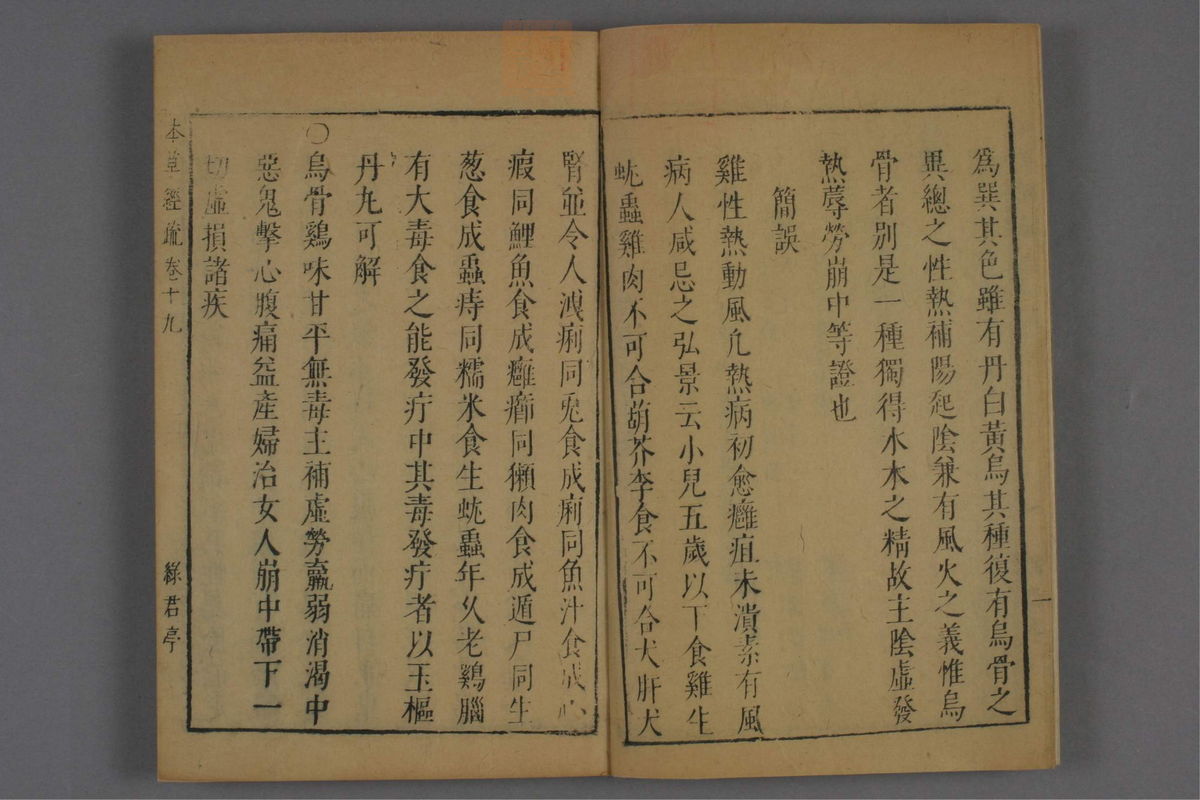 為巽其色雖有丹白黃烏其種復有烏骨之
異總之性熱補陽起陰兼有風火之義惟烏
骨者別是一種獨得水木之精故主陰虛發
熱蓐勞崩中等證也
簡誤
雞性熱動風凡熱病初愈癰疽未潰素有風
病人咸忌之弘景云小兒五歲以下食雞生
蚘蟲雞肉不可合葫芥李食不可合犬肝犬
腎並令人洩痢同兎食成痢同魚汁食成心
瘕同鯉魚食成癰癤同獺肉食成遁尸同生
葱食成蟲痔同糯米食生蚘蟲年久老鷄腦
有大毒食之能發疔中其毒發疔者以玉樞
丹丸可解
〇
烏骨鷄味甘平無毒主補虛勞羸弱消渴中
惡鬼擊心腹痛益產婦治女人崩中帶下一
切虛損諸疾
本草經疏 卷十九 綠君亭